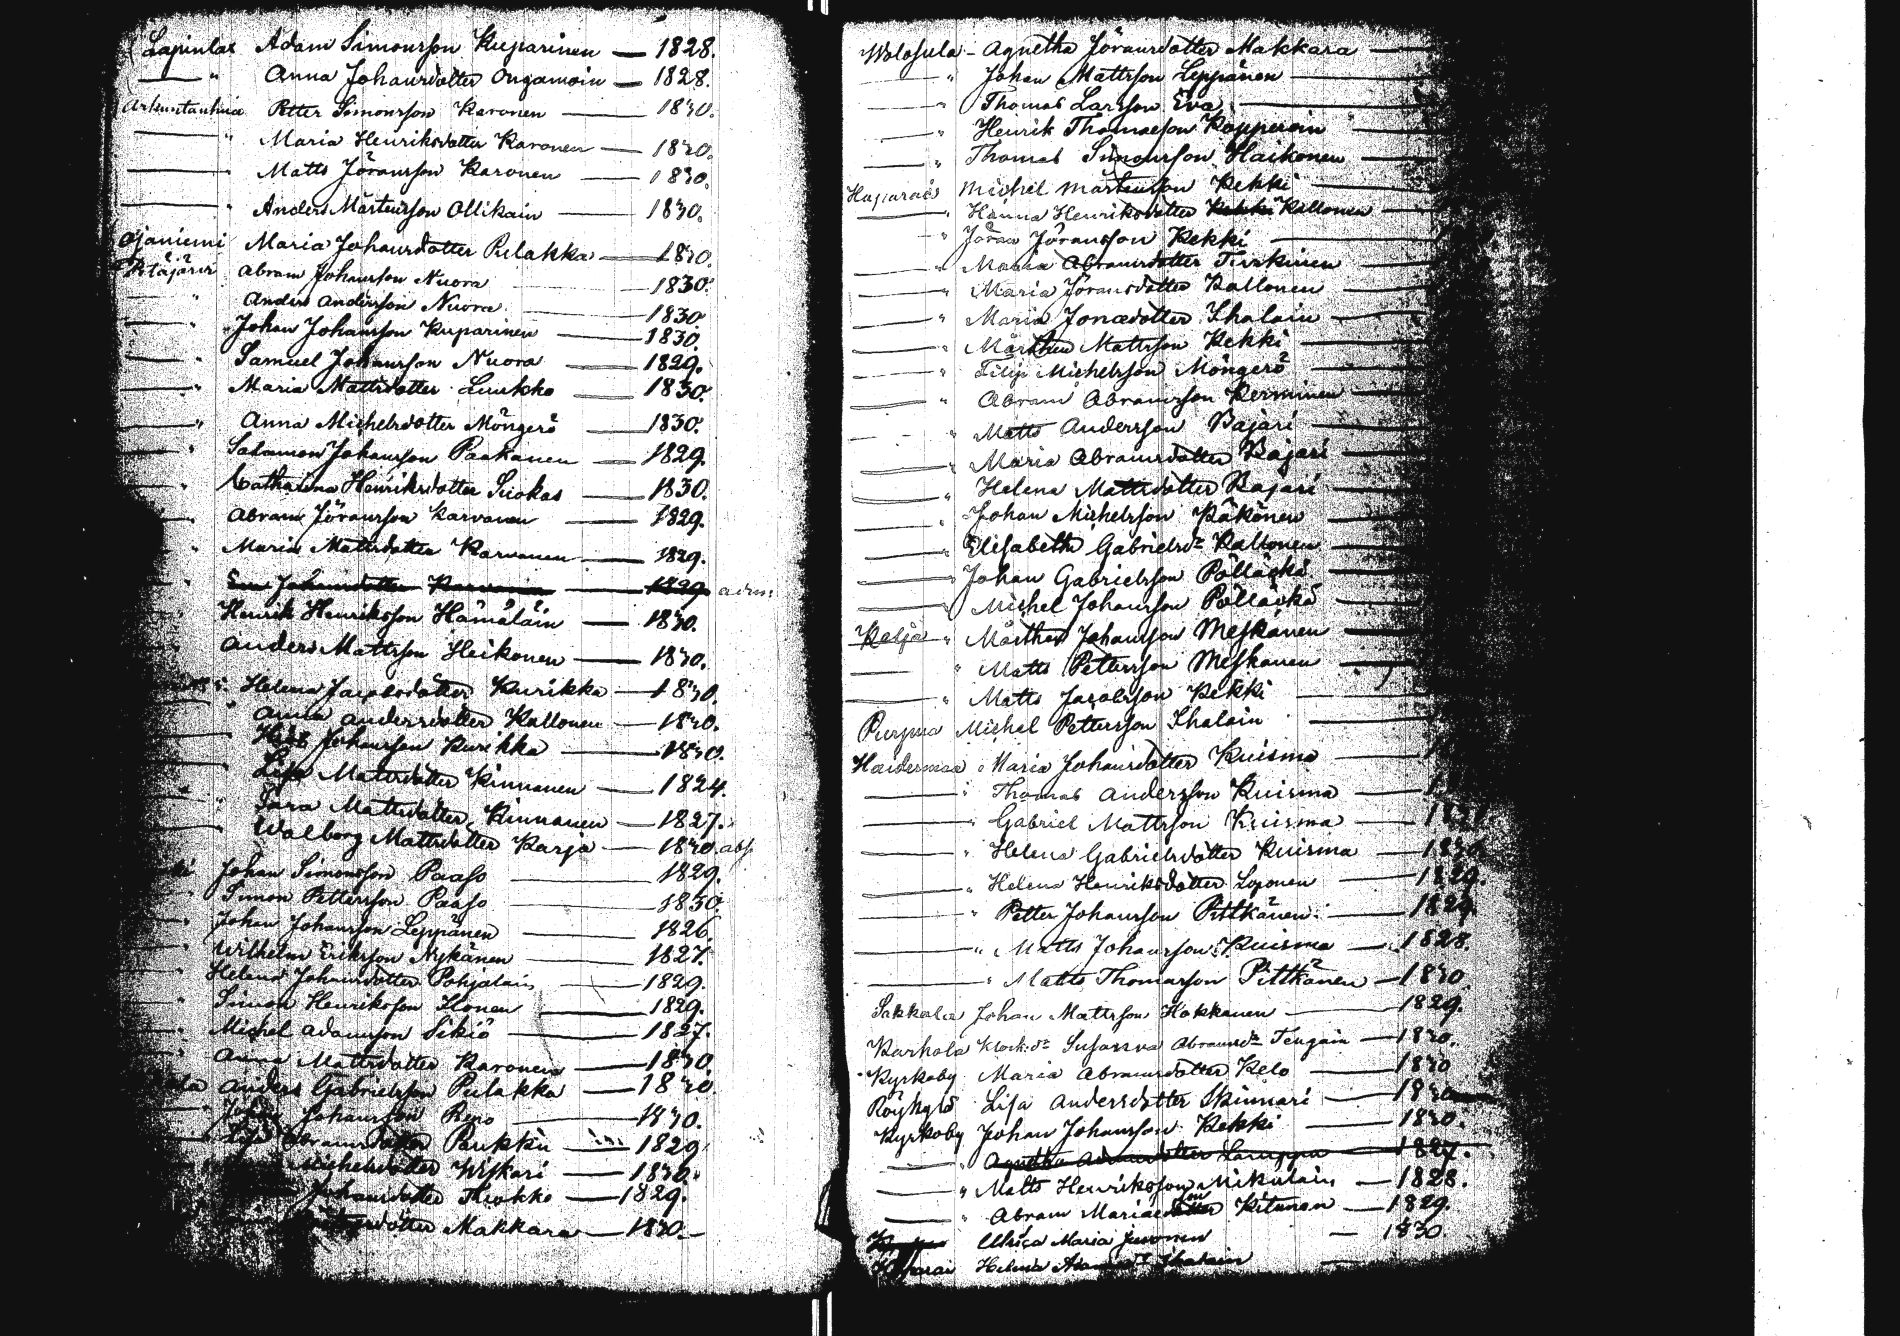 Lapinlax Adam Simonsson Kuparinen — 1828.
— " Anna Johansdotter Ongamoin — 1828.
Arkuntanhua Petter Simonsson Karonen — 1830.
— " Maria Henriksdotter Karonen — 1830.
— " Matts Jöransson Karonen — 1830.
— " Anders Mårtensson Ollikain — 1830.
Ojaniemi Maria Johansdotter Pulakka — 1830.
Abram Johansson Nuora 1830.
" Anders Andersson Nuora 1830
— " Johan Johansson Kuparinen — 1830.
— " Samuel Johansson Nuora — 1829.
— " Maria Mattsdotter Luukko — 1830.
— " Anna Michelsdotter Möngerö — 1830.
" Salamon Johansson Paakanen — 1829.
" Catharina Henriksdotter Suokas — 1830.
" Abram Jöransson Karvanen — 1829.
" Maria Mattsdotter Karvanen — 1829.
" Johansdotter — 1829.
" Henrik Henriksson Hämäläin — 1830.
Anders Mattsson Heikonen — 1830.
Helena Jacobsdotter Kurikka — 1830.
" Anna Andersdotter Kallonen — 1830.
Johansson Kurikka — 1830.
Lisa Mattsdotter Kinnanen — 1824.
" Sara Mattsdotter Kinnanen — 1827.
Walborg Mattsdotter Karja — 1830. abs
Johan Simonsson Paaso — 1829.
" Simon Pettersson Paaso — 1830.
" Johan Johansson Leppänen — 1826.
" Wilhelm Eriksson Nykänen — 1827.
" Helena Johansdotter Pohjalain — 1829.
" Simon Henriksson Ilonen — 1829.
" Michel Adamsson Sikiö — 1827.
" Anna Mattsdotter Karonen — 1830.
Anders Gabrielsson Pulakka — 1830.
" Johansson Repo — 1830.
Abramsdotter Pukki — 1829
Michelsdotter Wiskari — 1830.
Johansdotter Thokko — 1829.
Makkara — 1830. —
Wolosula — Agnetha Jöransdotter Makkara —
— " Johan Mattsson Leppänen —
— " Thomas Larsson Eva —
— " Henrik Thomasson Kopperoin —
— " Thomas Simonsson Haikonen —
Haparais Michel Mårtensson Kekki —
— " Hanna Henriksdotter Kekki Kallonen —
— " Jöran Jöransson Kekki —
— " Maria Abramsdotter Terskinen —
— " Maria Jöransdotter Kallonen —
— " Maria Jonaedotter Ihalain —
— " Mårthen Mattsson Kekki —
— " Filip Michelsson Möngerö —
— " Abram Abramsson Kerminen —
— " Matts Andersson Bajari —
— " Maria Abramsdotter Bajari —
— " Helena Mattsdotter Bajari —
— " Johan Michelsson Käkönen —
— " Elisabetha Gabrielsdr Kallonen —
— " Johan Gabrielsson Pölläckä —
— " Michel Johansson Pölläckä —
Kalja — " Mårthen Johansson Meskanen —
— " Matts Pettersson Meskanen —
— " Matts Jacobsson Kekki —
Purpua Michel Pettersson Ihalain —
Haidermaa Maria Johansdotter Kuisma —
— " Thomas Andersson Kuisma —
— " Gabriel Mattsson Kuisma —
— " Helena Gabrielsdotter Kuisma — 1830
— " Helena Henriksdotter Loponen — 1829.
— " Petter Johansson Pitkänen — 1829.
— " Matts Johansson Kuisma — 1828.
— " Matts Thomasson Pittkänen — 1830
Sakkola Johan Mattsson Hakkanen — 1829.
Karhola Klock:dr Susanna Abramsdr Tengain — 1830.
Kyrkoby Maria Abramsdotter Kelo — 1830
Röykylä Lisa Andersdotter Skinnari — 1830
Kyrkoby Johan Johansson Kekki — 1830.
— " Agnetha Adamsdotter Laruppa 1827.
— " Matts Henriksson Mikulain — 1828.
— " Abram Mariaeson Kitunen — 1829.
Ulrica Maria Juvonen — 1830.
Helena Ihalain —